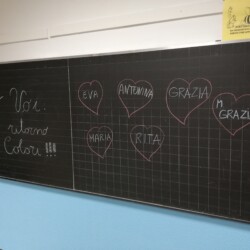 Voi
ritorno
Colori!!!
EVA
ANTONINA
GRAZIA
M
GRAZIA
MARIA
RITA